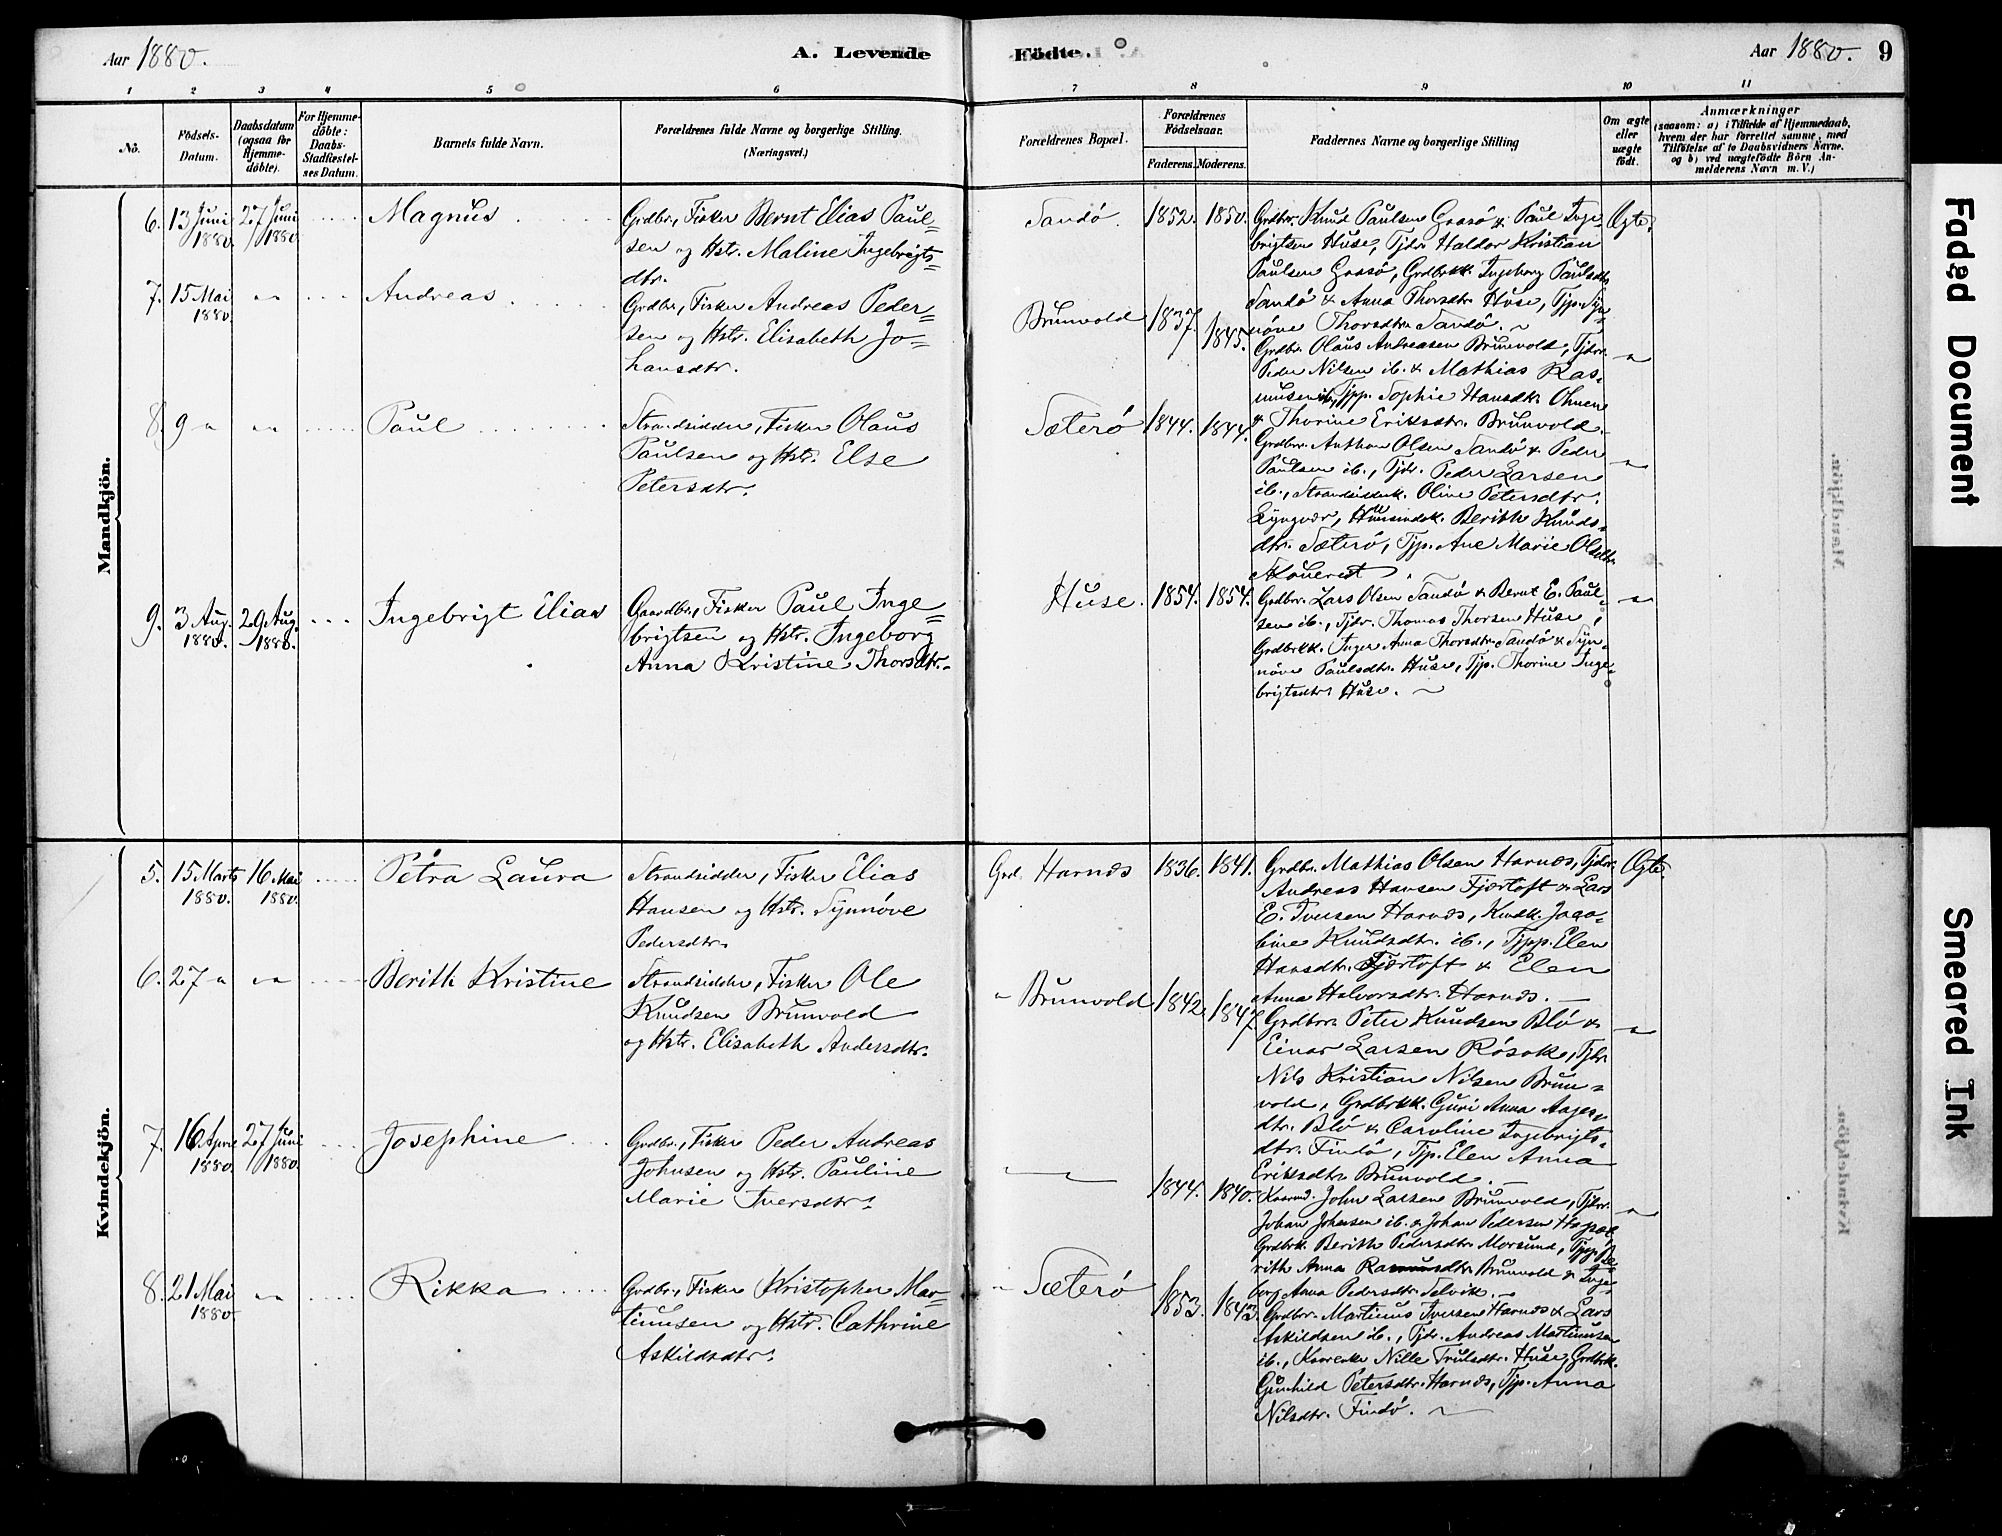 Aar 1880.
A. Levende Födte.
Aar 1880. 9
1 2 3 4 5 6 7 8 9 10 11
No.
Födsels-
Datum.
Daabsdatum
(ogsaa for
Hjemme-
döbte).
For Hjemme-
döbte:
Daabs-
Stadfæstel-
ses Datum.
Barnets fulde Navn.
Forældrenes fulde Navne og borgerlige Stilling.
(Næringsvei.)
Forældrenes Bopæl.
Forældrenes
Födselsaar.
Faderens. Moderens.
Faddernes Navne og borgerlige Stilling
Om ægte
eller
uægte
födt.
Anmærkninger
(saasom: a) i Tilfælde af Hjemmedaab,
hvem der har forrettet samme, med
Tilföielse af to Daabsvidners Navne,
og b) ved uægtefödte Börn An-
melderens Navn m. V.)
Mandkjön.
6. 13 Juni 1880. 27 Juni 1880
Magnus
Grdbr., Fisker Bernt Elias Paul=
sen og Hstr. Maline Ingebrigts=
dtr.
Sandö. 1852. 1850.
Grdbr. Knud Paulsen Grasö & Paul Inge-
brigtsen Huse, Tjdr. Haldor Kristian
Paulsen Grasö, Grdbrkk. Ingeborg Paulsdtr
Sandö & Anna Thorsdtr. Huse, Tjp. Syn=
növe Thorsdtr. Sandö.
Ægte.
7. 15 Mai 1880. "
Andreas
Grdbr., Fisker Andreas Peder=
sen og Hstr. Elisabeth Jo=
hansdtr.
Brunvold 1837. 1845.
Grdbr. Olaus Andreasen Brunvold, Tjdrr.
Peder Nilsen ib. & Mathias Ras-
musen ib., Tjpp. Sophie Hansdtr.
& Thorine Eriksdtr. Brunvold.
"
8. 9 " "
Paul
Strandsidder, Fisker Olaus
Paulsen og Hstr. Else
Petersdtr.
Sæterö 1844. 1844.
Grdbrr. Anthon Olsen Sandö & Peder
Paulsen ib., Tjdr. Peder Larsen
ib., Strandsidderk. Oline Petersdtr.
Lyngvær, Huusmdsk. Berith Knuds-
dtr. Sæterö, Tjp. Ane Marie Olsdtr.
"
9. 3 Aug. 1880. 29 Aug. 1880.
Ingebrigt Elias
Gaardbr., Fisker Paul Inge=
brigtsen og Hstr. Ingeborg
Anna Kristine Thorsdtr.
Huse. 1854. 1854.
Grdbrr. Lars Olsen Sandö & Bernt E. Paul-
sen ib., Tjdr. Thomas Thorsen Huse,
Grdbrkk. Inger Anna Thorsdtr. Sandö & Syn-
növe Paulsdtr. Huse, Tjp. Thorine Inge-
brigtsdtr. Huse.
"
Kvindekjön.
5. 15 Marts 1880. 16 Mai 1880.
Petra Laura
Strandsidder, Fisker Elias
Hansen og Hstr. Synnöve
Pedersdtr.
Grd. Harnæs 1836. 1841.
Grdbr. Mathias Olsen Harnæs, Tjdrr.
Andreas Hansen Fjærtoft & Lars
E. Iversen Harnæs, Jaco-
bine Knudsdtr. ib., Tjpp. Elen
Hansdtr. Fjærtoft & Elen
Anna Halvorsdtr. Harnæs.
Ægte.
6. 27 " "
Berith Kristine
Strandsidder, Fisker Ole
Knudsen Brunvold
og Hstr. Elisabeth Andersdtr.
" Brunvold 1842. 1847.
Grdbrr. Peter Knudsen Blö &
Einar Larsen Rösok, Tjdr.
Nils Kristian Nilsen Brun-
vold, Grdbrkk. Guri Anna Aages-
dtr. Blö & Caroline Ingebrigts-
dtr. Findö, Tjp. Elen Anna
Eriksdtr. Brunvold.
"
7. 16 April 1880. 27 Juni 1880.
Josephine
Grdbr., Fisker Peder Andreas
Johnsen og Hstr. Pauline
Marie Iversdtr.
1844. 1840.
John Larsen Brunvold, Tjdrr.
Johan Johansen ib. & Johan Pedersen
Grdbrk. Berith Pedersdtr. Morsund, Tjpp. Be-
rith Anna Rasmusdtr. Brunvold & Inge-
borg Anna Pedersdtr. Selvik.
"
8. 21 Mai 1880. "
Rikka
Grdbr., Fisker Kristopher Mar=
tinusen og Hstr. Cathrine
Askildsdtr.
" Sæterö 1853. 1843.
Grdbrr. Martinus Iversen Harnæs & Lars
Askildsen ib., Tjdr. Andreas Martinusen
ib., Nille Trulsdtr. Huse, Grdbrk.
Gunhild Petersdtr. Harnæs, Tjp. Anna
Nilsdtr. Findö.
Faded Document
Smeared Ink